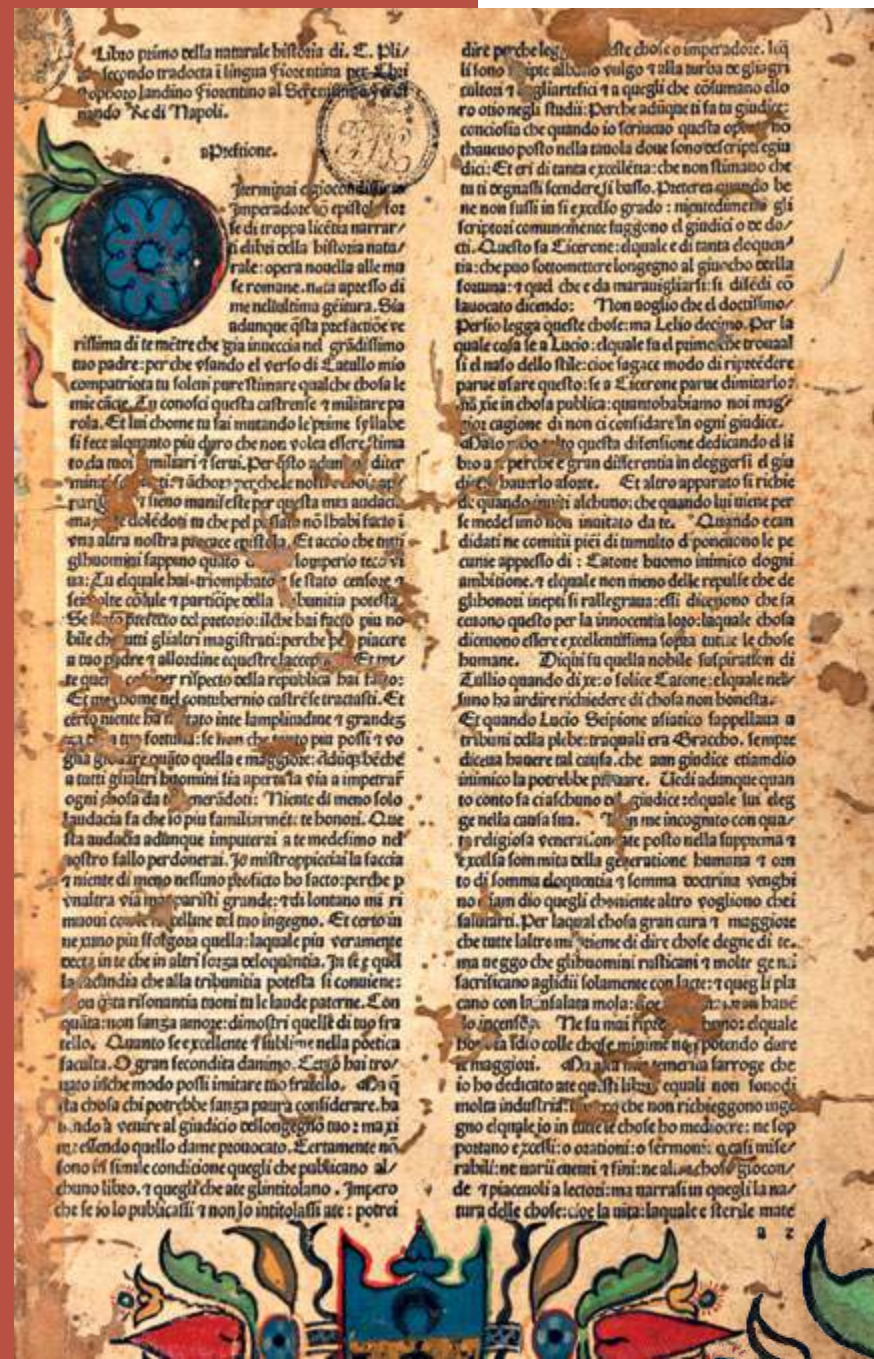 Libro primo della naturale historia di. C. Pli/
secondo tradocta ĩ lingua Fiorentina per Chri
stophoro landino Fiorentino al Serenissimo Ferdi
nando Re di Napoli.
Prefatione.
Imperadore cõ epistola for
se di troppa licẽtia narrar/
ti elibri della historia natu/
rale: opera nouella alle mu
se romane. nata apresso di
me nellultima gẽitura. Sia
adunque q̃sta prefactiõe ve
rissima di te mẽtre che gia inuecchia nel grãdissimo
tuo padre: per che vsando el verso di Catullo mio
compatriota tu soleui pure stimare qualche chosa le
mie ciãcie. Tu conosci questa castrense ⁊ militare pa
rola. Et lui chome tu sai mutando le prime syllabe
si fece alquanto piu duro che non volea essere stima
to da tuoi familiari ⁊ serui. Per q̃sto
glihuomini sappino quãto
ua: Tu elquale hai triomphato ⁊ se stato censore ⁊
sei volte cõsule ⁊ participe della tribunitia potesta.
Se stato prefecto del pretorio: ilche hai facto piu no
bile che tutti glialtri magistrati: perche per piacere
a tuo padre ⁊ allordine equestre laccep
per rispecto della republica hai facto:
Et me chome nel contubernio castrẽse tractasti. Et
certo niente ha mutato inte lamplitudine ⁊ grandez
za della tua fortuna: se non che tanto piu possi ⁊ vo
glia giouare quãto quella e maggiore: Adũq; bẽche
a tutti glialtri huomini sia aperta la via a impetrar̃
ogni chosa da te venerãdoti: Niente di meno solo
laudacia fa che io piu familiarmẽte te honori. Que
sta audacia adunque imputerai a te medesimo nel
nostro fallo perdonerai. Io mi stroppicciai la faccia
⁊ niente di meno nessuno proficto ho facto: perche p
vnaltra via mi apparisti grande: ⁊ di lontano mi ri
del tuo ingegno. Et certo in
nexuno piu sfolgora quella: laquale piu veramente
decta in te che in altri forza deloquẽtia.
la facundia che alla tribunitia potesta si conuiene:
Con q̃ta risonantia tuoni tu le laude paterne. Con
quãta: non sanza amore: dimostri quelle di tuo fra
tello. Quanto se excellente ⁊ sublime nella poetica
faculta. O gran fecondita danimo. Certo hai tro/
uato inche modo possi imitare tuo fratello. Ma q̃
sta chosa chi potrebbe sanza paura considerare. ha
uendo a venire al giudicio dellongegno tuo: maxi
me essendo quello dame prouocato. Certamente nõ
sono in simile condicione quegli che publicano al/
chuno libro. ⁊ quegli che ate glintitolano. Impero
che se io lo publicassi ⁊ non lo intitolassi ate: potrei
dire perche leg queste chose o imperadore.
li sono scripte albasso vulgo ⁊ alla turba de gli agri
cultori ⁊ degliartefici ⁊ a quegli che cõsumano ello
ro otio negli studii: Perche adũque ti fa tu giudice:
conciosia che quando io scriueuo questa opera nõ
thaueuo posto nella tauola doue sono descripti egiu
dici: Et eri di tanta excellẽtia: che non stimano che
tu ti degnassi scendere si basso. Preterea quando be
ne non fussi in si excelso grado: nientedimeno gli
scriptori comunemente fuggono el giudici o de do/
cti. Questo fa Cicerone: elquale e di tanta eloquen/
tia: che puo sottomettere longegno al giuocho della
fortuna: ⁊ quel che e da marauigliarsi: si difẽdi cõ
lauocato dicendo: Non voglio che el doctissimo/
Persio legga queste chose: ma Lelio decimo. Per la
quale cosa se a Lucio: elquale fu el primo che trouaal
si el naso dello stile: cioe sagace modo di riprẽdere
parue usare questo: se a Cicerone parue dimitarlo:
in chosa publica: quanto habiamo noi mag/
gior cagione di non ci confidare in ogni giudice.
Ma io mi ho tolto questa difensione dedicando el li
bro a te perche e gran differentia in eleggersi el giu
dice hauerlo a sorte. Et altro apparato si richie
de quando inuiti alchuno: che quando lui uiene per
se medesimo non inuitato da te. Quando ecan
didati ne comitii piẽi di tumulto diponeuono le pe
cunie appresso di: Catone huomo inimico dogni
ambitione. ⁊ elquale non meno delle repulse che de
glihonori inepti si rallegraua: essi diceuono che fa
ceuono questo per la innocentia loro: laquale chosa
diceuono essere excellentissima sopra tutte le chose
humane. Di qui fu quella nobile suspiration di
Tullio quando dixe: o felice Catone: elquale nes/
suno ha ardire richiedere di chosa non honesta.
Et quando Lucio Scipione asiatico sappellaua a
tribuni della plebe: traquali era Graccho. sempre
diceua hauere tal causa. che aun giudice etiamdio
inimico la potrebbe prouare. Uedi adunque quan
to conto fa ciaschuno del giudice: elquale lui eleg
ge nella causa sua. Non me incognito con qua/
ta religiosa veneratione ate posto nella supprema ⁊
excelsa sommita della generatione humana ⁊ orna
to di somma eloquentia ⁊ somma doctrina venghi
no etiam dio quegli che niente altro vogliono chei
salutarti. Per laqual chosa gran cura ⁊ maggiore
che tutte laltre mi tieme di dire chose degne di te.
ma ueggo che glihuomini rusticani ⁊ molte genti
sacrificano aglidii solamente con lacte: ⁊ quegli pla
cano con la insalata mola:
lo incenso. Ne fu mai ripreso alchuno: elquale
honora idio colle chose minime nõ potendo dare
le maggiori. Ma alla mia temerita sarroge che
io ho dedicato ate questi libri equali non sono di
molta industria: che non richieggono inge
gno elquale io in tutte le chose ho mediocre: ne sop
portano excessi: o orationi: o sermoni: o casi mise/
rabili: ne uarii euenti ⁊ fini: ne altre chose giocon/
de ⁊ piaceuoli a lectori: ma narrasi in quegli la na/
tura delle chose: cioe la uita: laquale e sterile mate
a 2